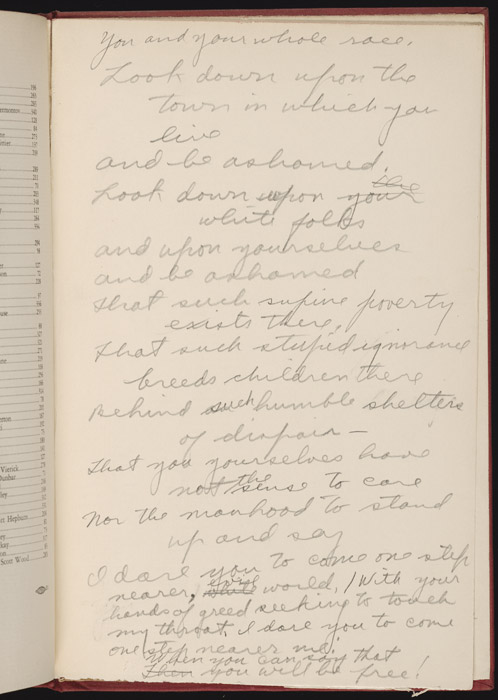 Viereck
Dunbar
Scott Wood
You and your whole race.
Look down upon the
town in which you
live
and be ashamed.
the
Look down upon your
white folks
and upon yourselves
and be ashamed
that such supine poverty
exists there,
that such stupid ignorance
breeds children there
Behind such humble shelters
of dispair—
That you yourselves have
not the sense to care
Nor the manhood to stand
up and say
I dare you to come one step
evil
nearer, white world, / With your
hands of greed seeking to touch
my throat, I dare you to come
one step nearer me:
When you can say that
Then you will be free!